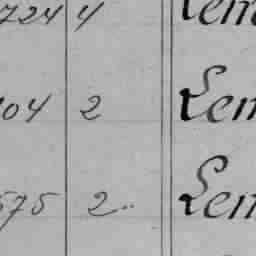 724 4 Lem
104 2 Lem
575 2.. Lem